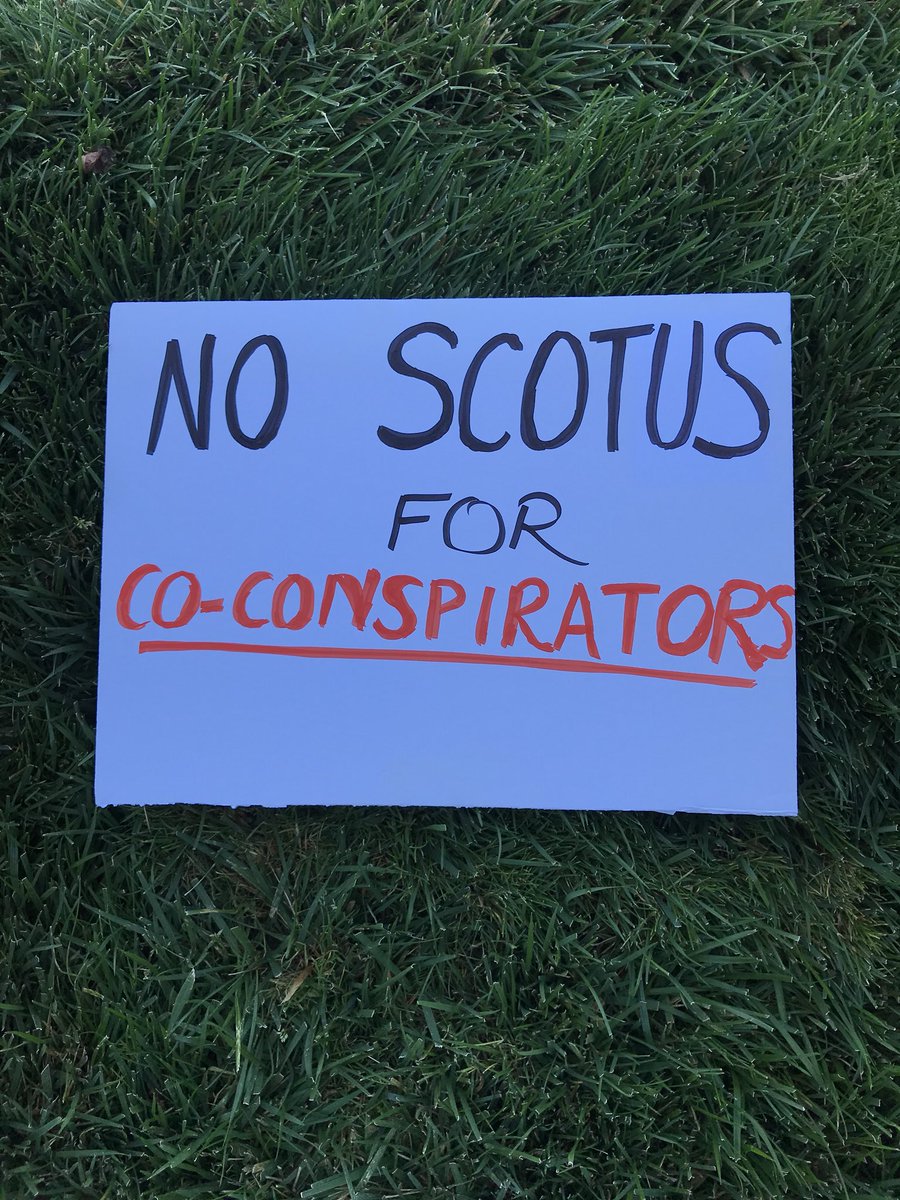 NO SCOTUS
FOR
CO-CONSPIRATORS